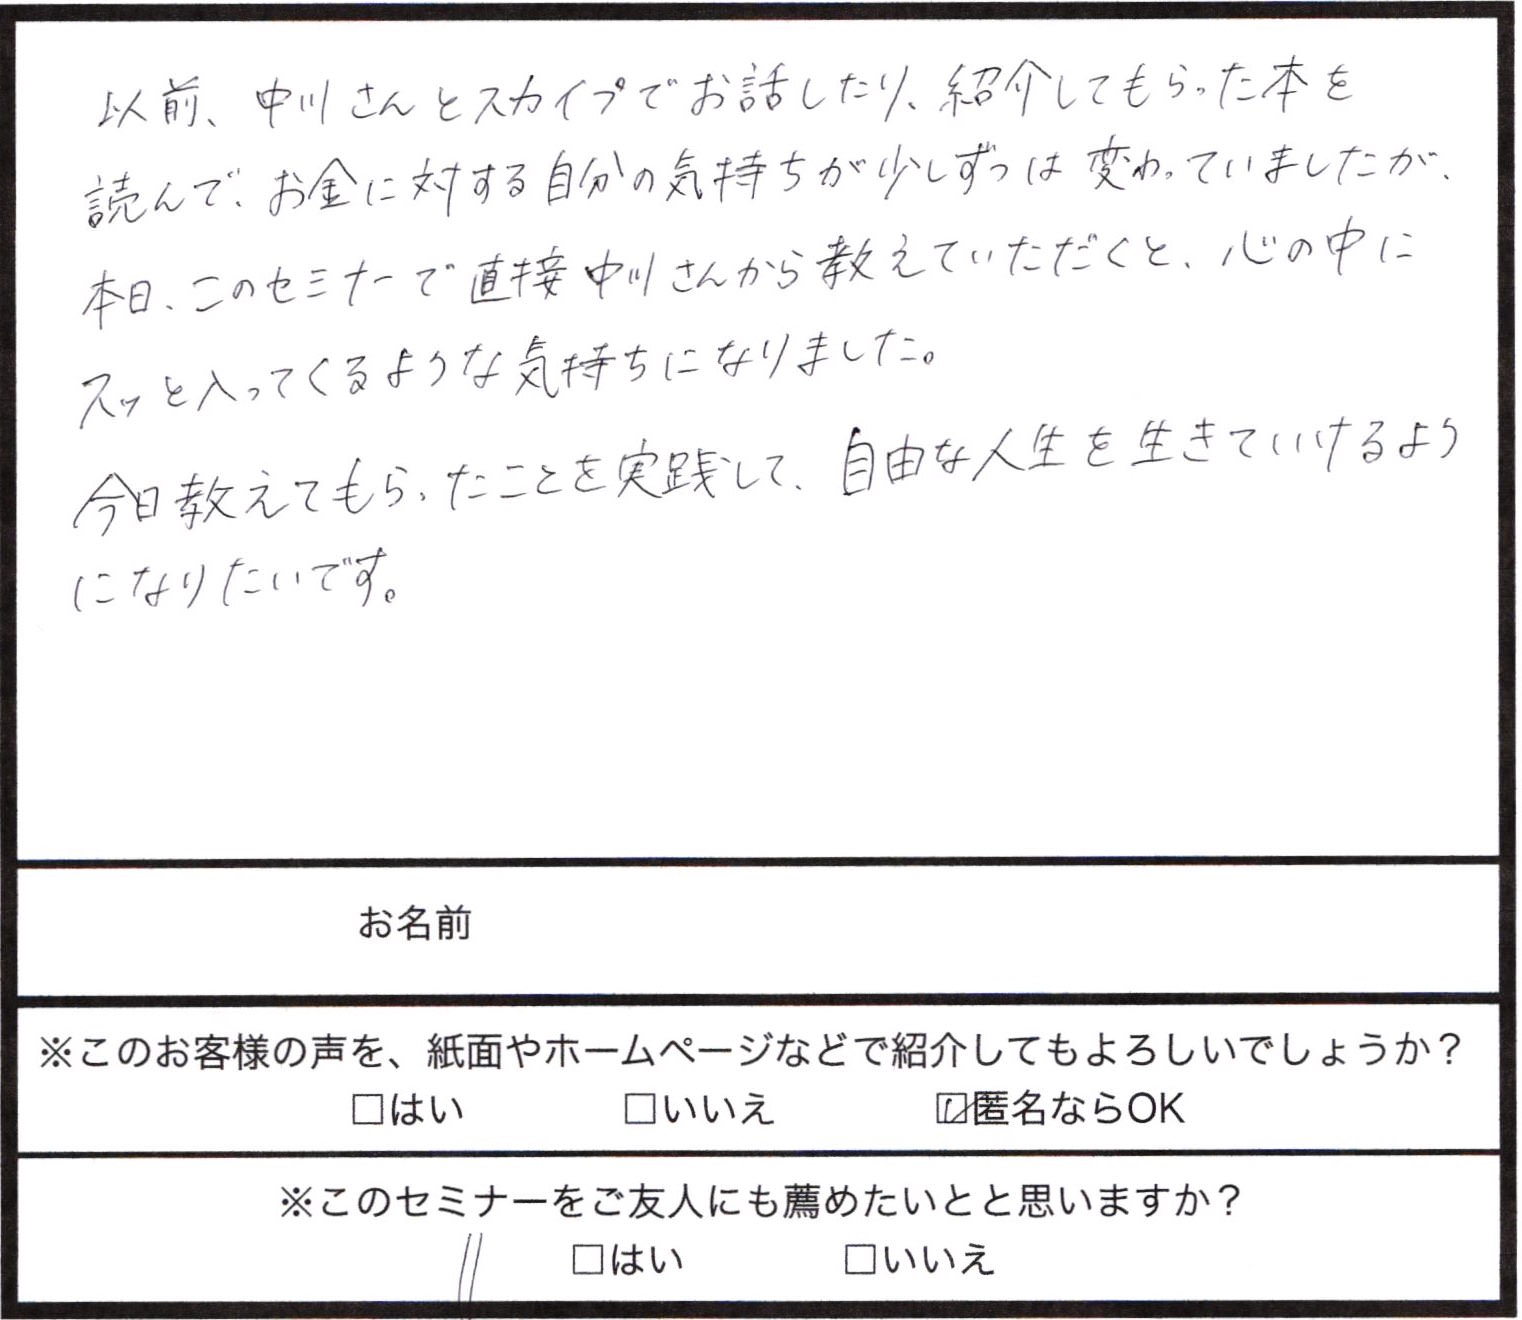 以前、中川さんとスカイプでお話したり、紹介してもらった本を
読んで、お金に対する自分の気持ちが少しずつは変わっていましたが、
本日、このセミナーで直接中川さんから教えていただだくと、心の中に
スッと入ってくるような気持ちになりました。
今日教えてもらったことを実践して、自由な人生を生きていけるよう
になりたいです。
お名前
※このお客様の声を、紙面やホームページなどで紹介してもよろしいでしょうか？
□はい □いいえ ☑匿名ならOK
※このセミナーをご友人にも薦めたいとと思いますか？
□はい □いいえ